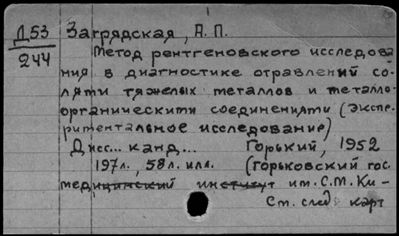 Д53
244
Загрядская, А. П.
Метод рентгеновского исследова
ния в диагностике отравлений со-
лями тяжелых металлов и металло-
органическими соединениями (Экспе-
риментальное исследование)
Дисс... канд... Горький, 1952
197л., 58л. илл. (Горьковский гос.
медицинский институт им. С.М. Ки-
См. след. карт